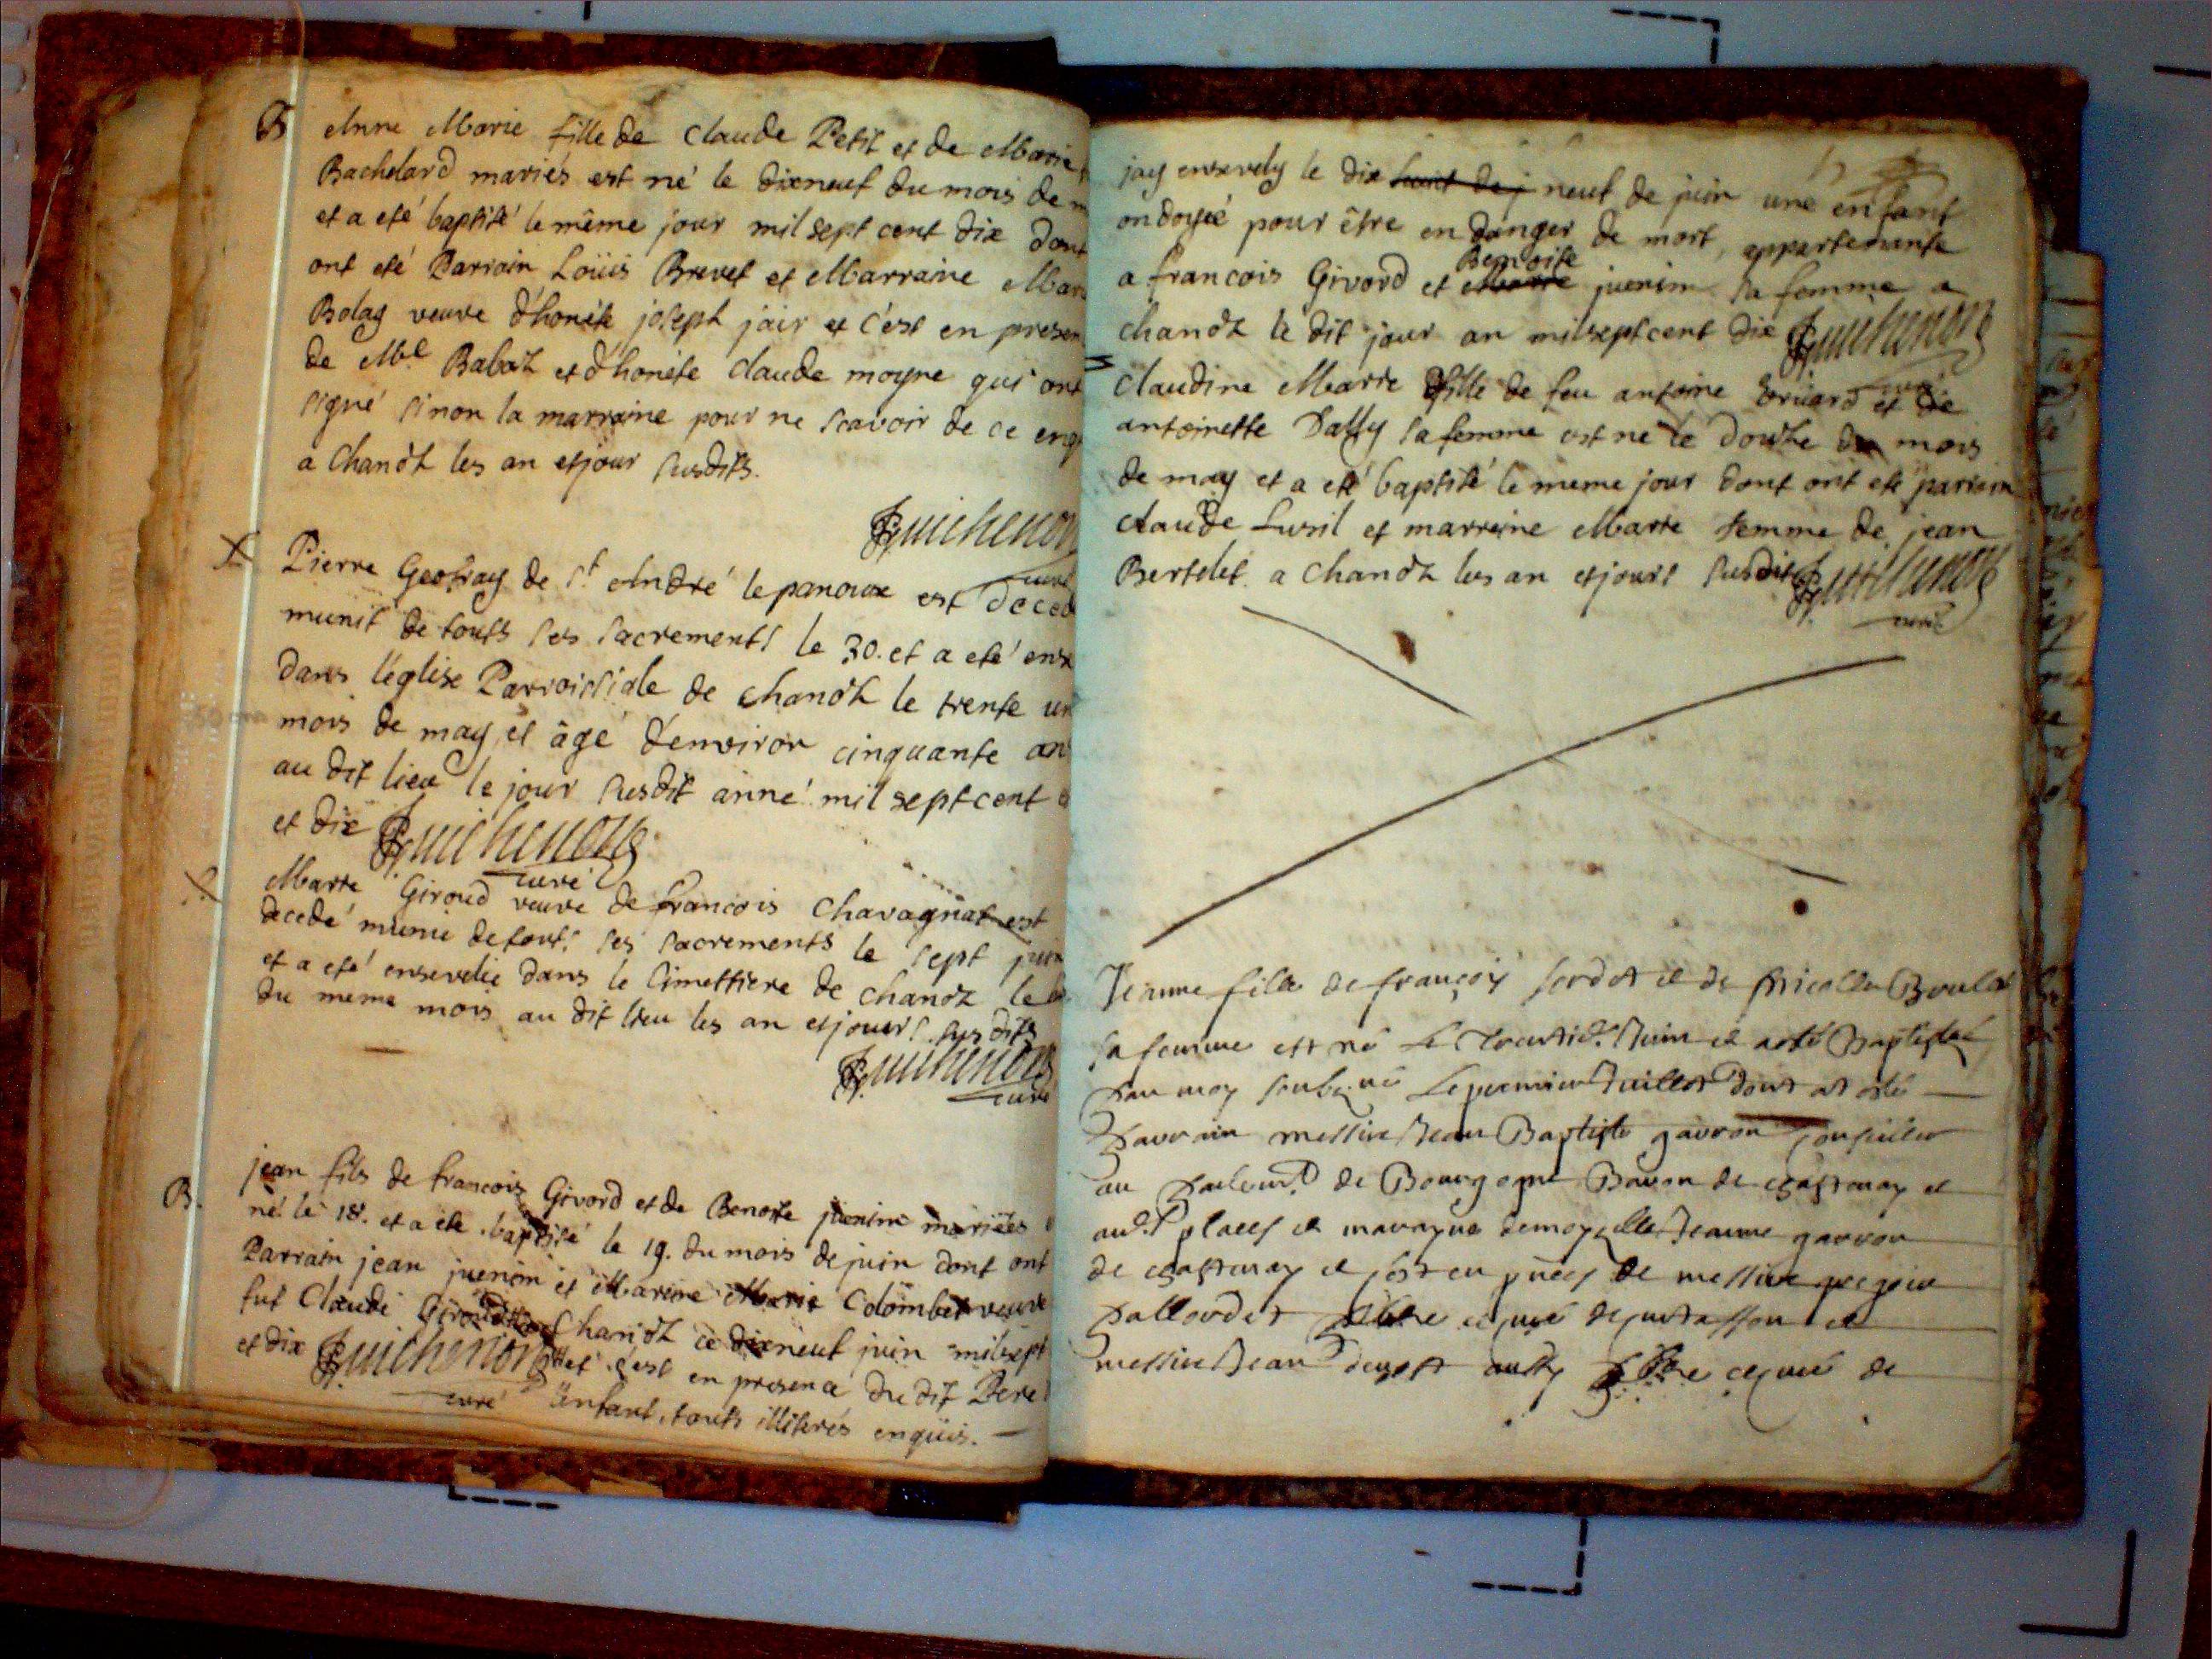 B Anne Marie fille de Claude Petit et de Marie
Bachelard mariés est né le dixneuf du mois de m
et a eté baptisé le même jour mil sept cent dix dont
ont eté Parrain Loüis Brevet et Marraine Mar
Bolag veuve d'honête joseph jair et c'est en presen
de Mre Babaz et d'honéte claude moyne qui ont
signé sinon la marraine pour ne scavoir de ce enq
a Chanoz les an et jour susdits.
Guichenon
curé
Pierre Geofray de St André le panoux est decedé
munit de touts ses sacrements le 30. et a eté ense
dans l'église Parroissiale de chanoz le trente un
mois de may et âgé d'environ cinquante ans
au dit lieu le jour susdit anné mil sept cent
et dix Guichenon
curé
Marie Giroud veuve de francois Chavagnat est
decedé munie de touts ses sacrements le sept juin
et a eté ensevelie dans le cimettiere de chanoz le
du meme mois au dit lieu les an et jours susdits
Guichenon
curé
B. jean fils de francois Givord et de Benoite juenin mariées
né le 18. et a ete baptisé le 19. du mois de juin dont ont
Parrain jean juenin et Marine Marie Colombet veuve
fut Claude Chanoz ce dixneuf juin milsept
et dix Guichenon et c'est en presence du dit Pere
curé enfant, touts illiterés enquis.
jay ensevely le dix huit de j neuf de juin une enfant
ondoyée pour être en danger de mort, appartenante
Benoite
a francois Givord et Marie juenin sa femme a
chanoz le dit jour an milseptcent dix Guichenon
curé
claudine Marie fille de feu antoine et de
antoinette sa femme est ne le douze du mois
de may et a eté baptisé le meme jour dont ont eté parrain
claude et marreine Marie femme de jean
Bertelet a Chanoz les an et jours susdits Guichenon
curé
Jeanne fille de françois et de
sa femme est né le juin et a esté Baptisée
par moy soubsigné le premier Juillet dont at esté
parrain messire Jean Baptiste garron conseiller
au de Bourgogne Baron de chastenay et
places et marayne demoyselle Jeanne garron
de chastenay et c'est en de messire
et curé de et
messire Jean aussy et curé de